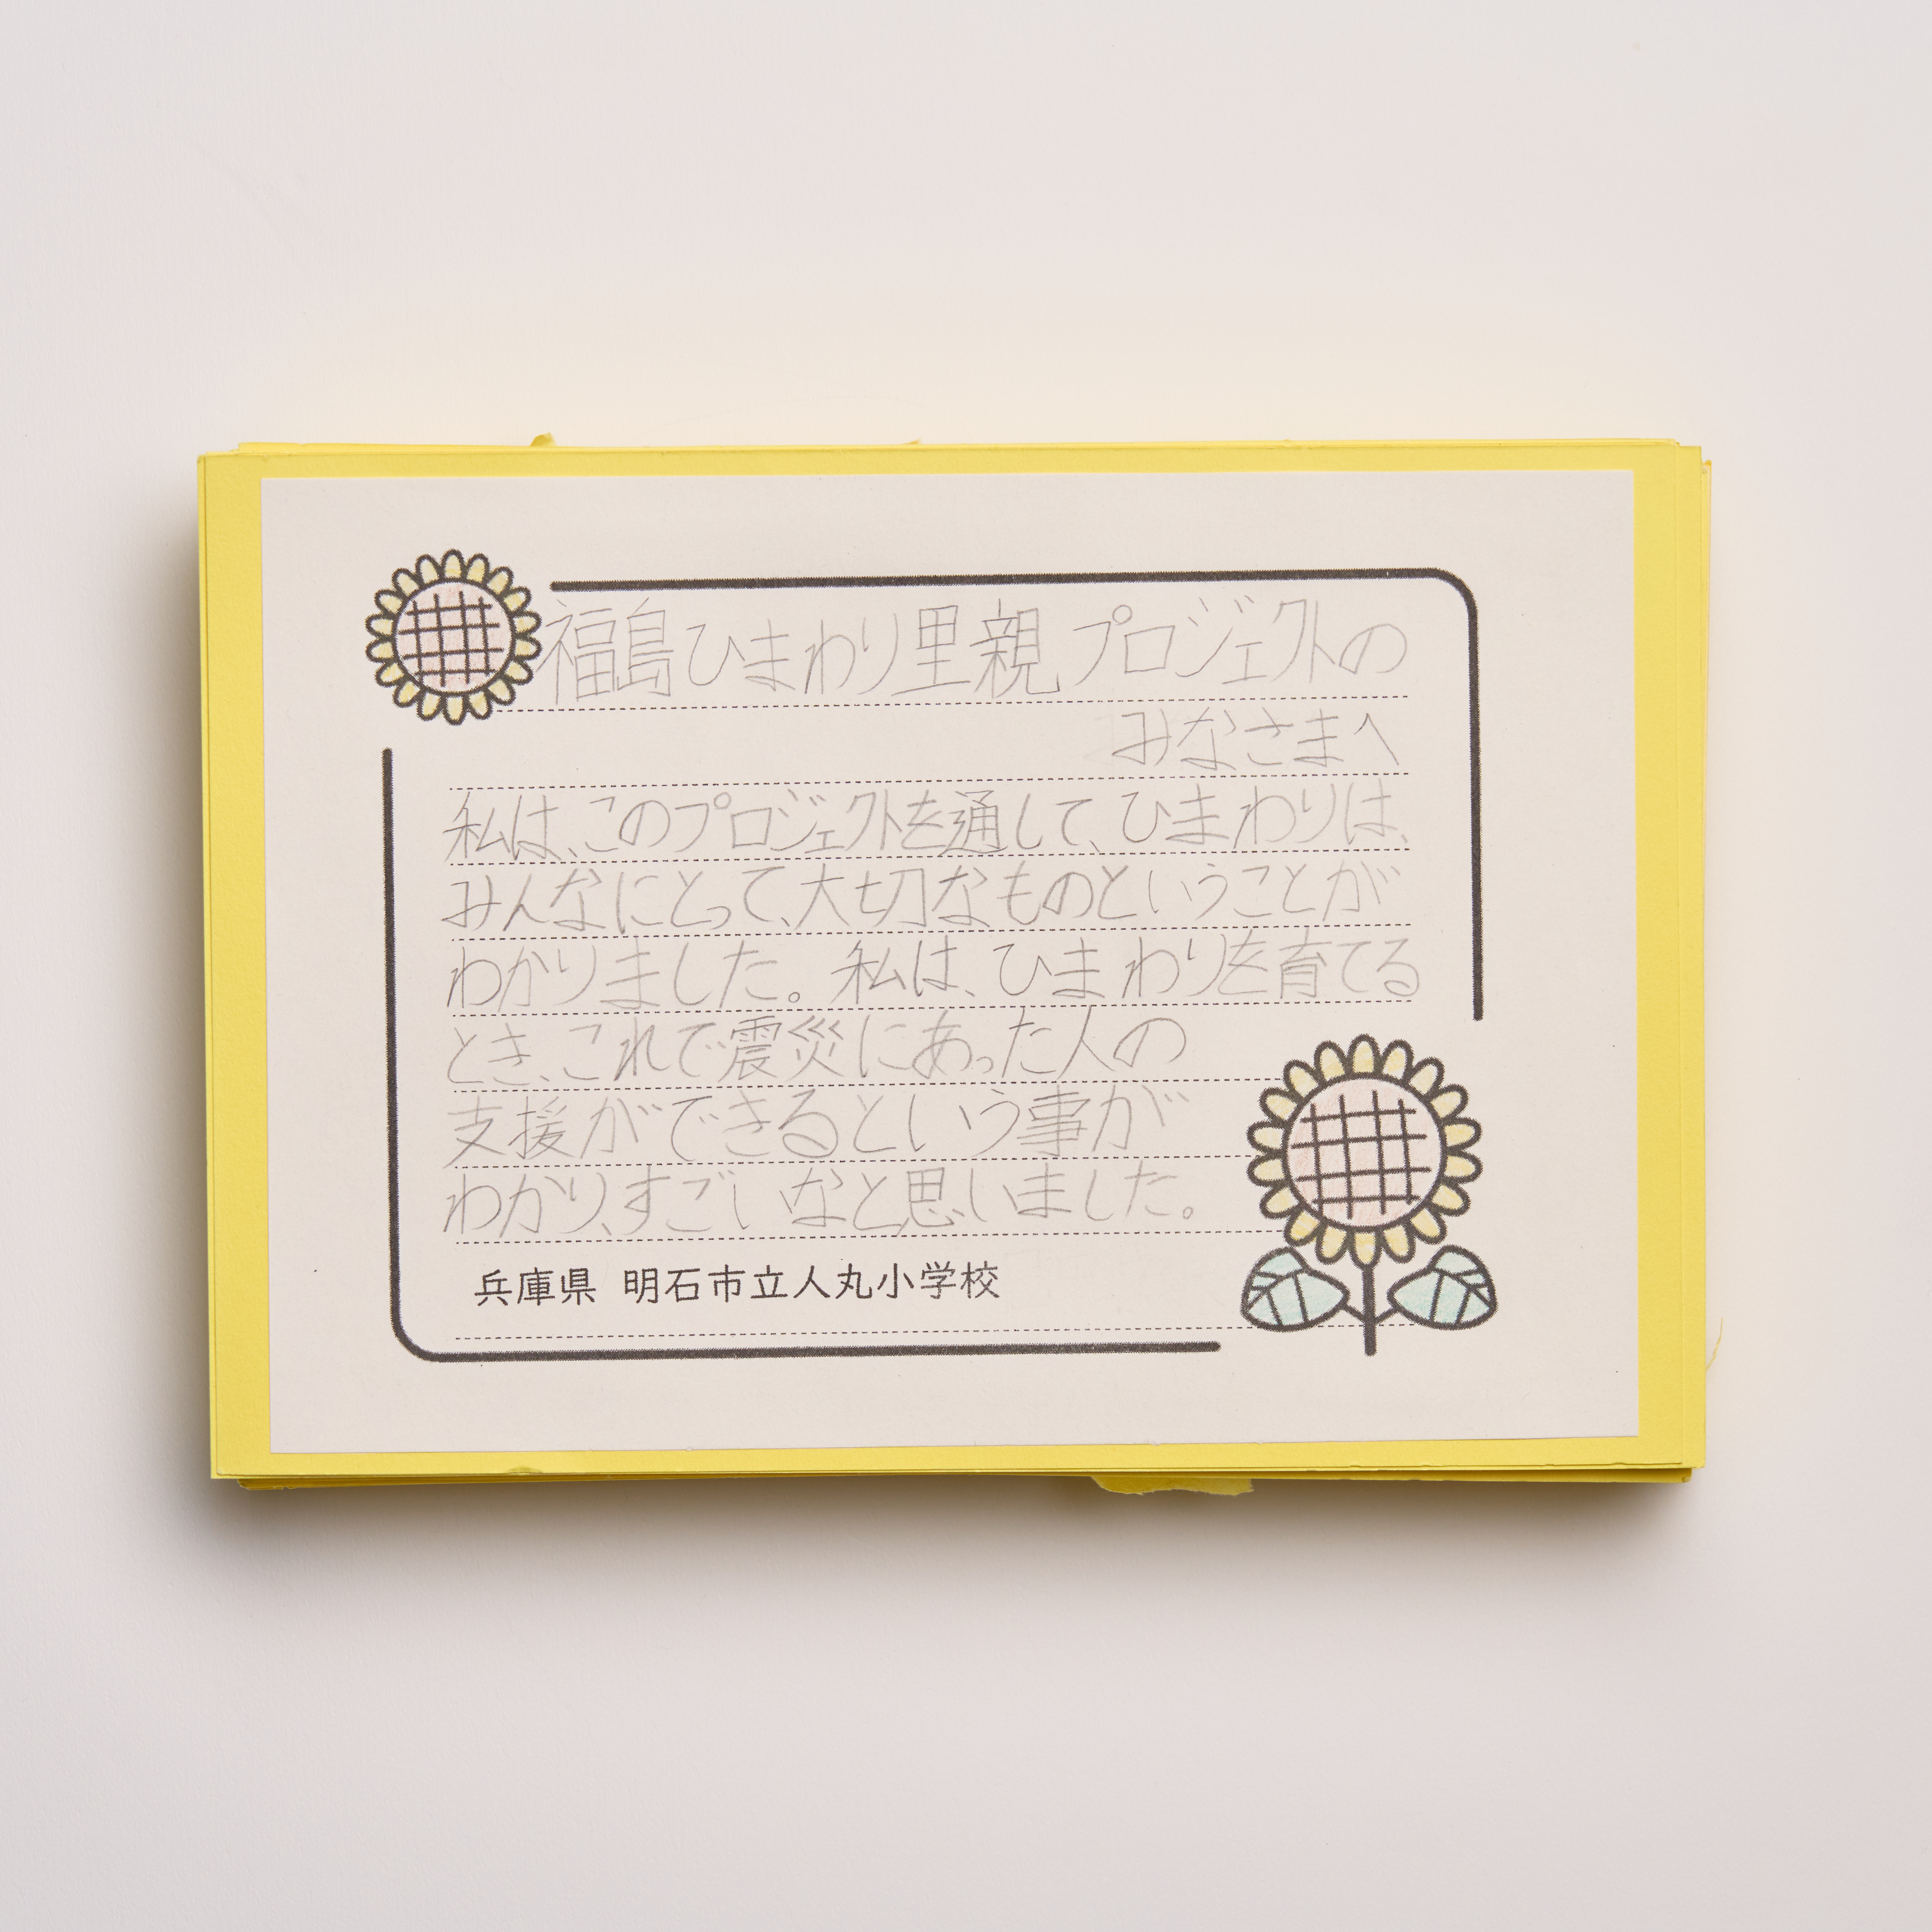 福島ひまわり里親プロジェクトの
みなさまへ
私は、このプロジェクトを通して、ひまわりは、
みんなにとって、大切なものということが
わかりました。私は、ひまわりを育てる
とき、これで震災にあった人の
支援ができるという事が
わかり、すごいなと思いました。
兵庫県 明石市立人丸小学校